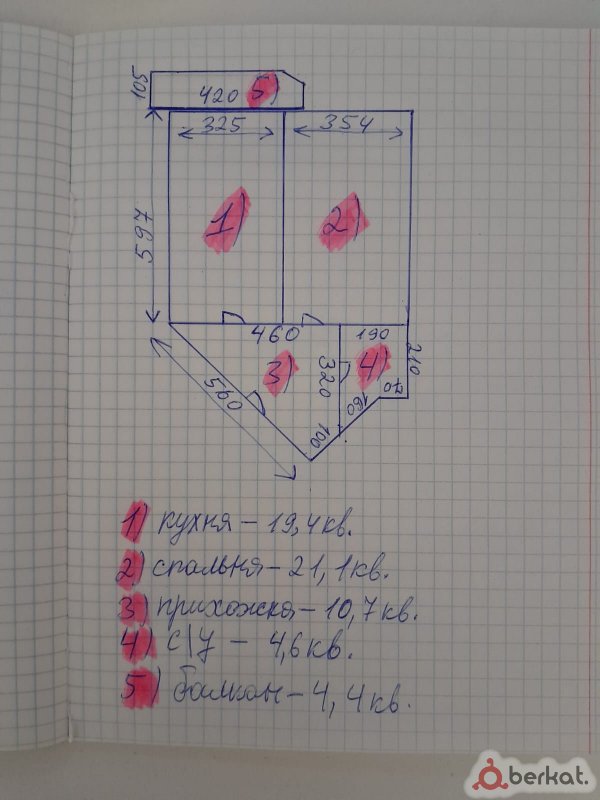 105
420 5)
325
354
597
1)
2)
460
190
3)
320
4)
210
560
70
160
100
1) кухня - 19,4кв.
2) спальня - 21,1кв.
3) прихожка - 10,7кв.
4) с/у - 4,6кв.
5) балкон - 4,4кв.
berkat.